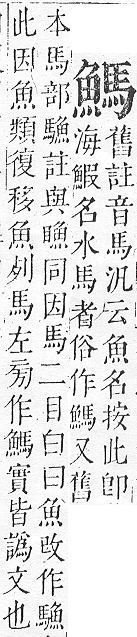 鰢
舊註音馬汎云魚名按此卽
海鰕名水馬者俗作鰢又舊
本馬部䮫註與䁩同因馬二目白曰魚攺作䮫
此因魚類復移魚列馬左㫄作鰢實皆譌文也